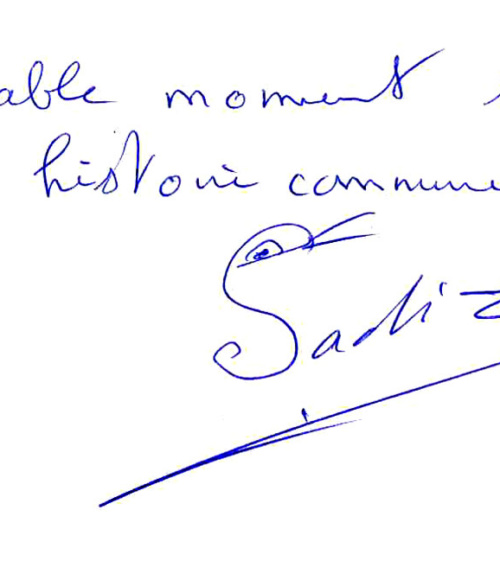 able moment
histoire commune
Sadi